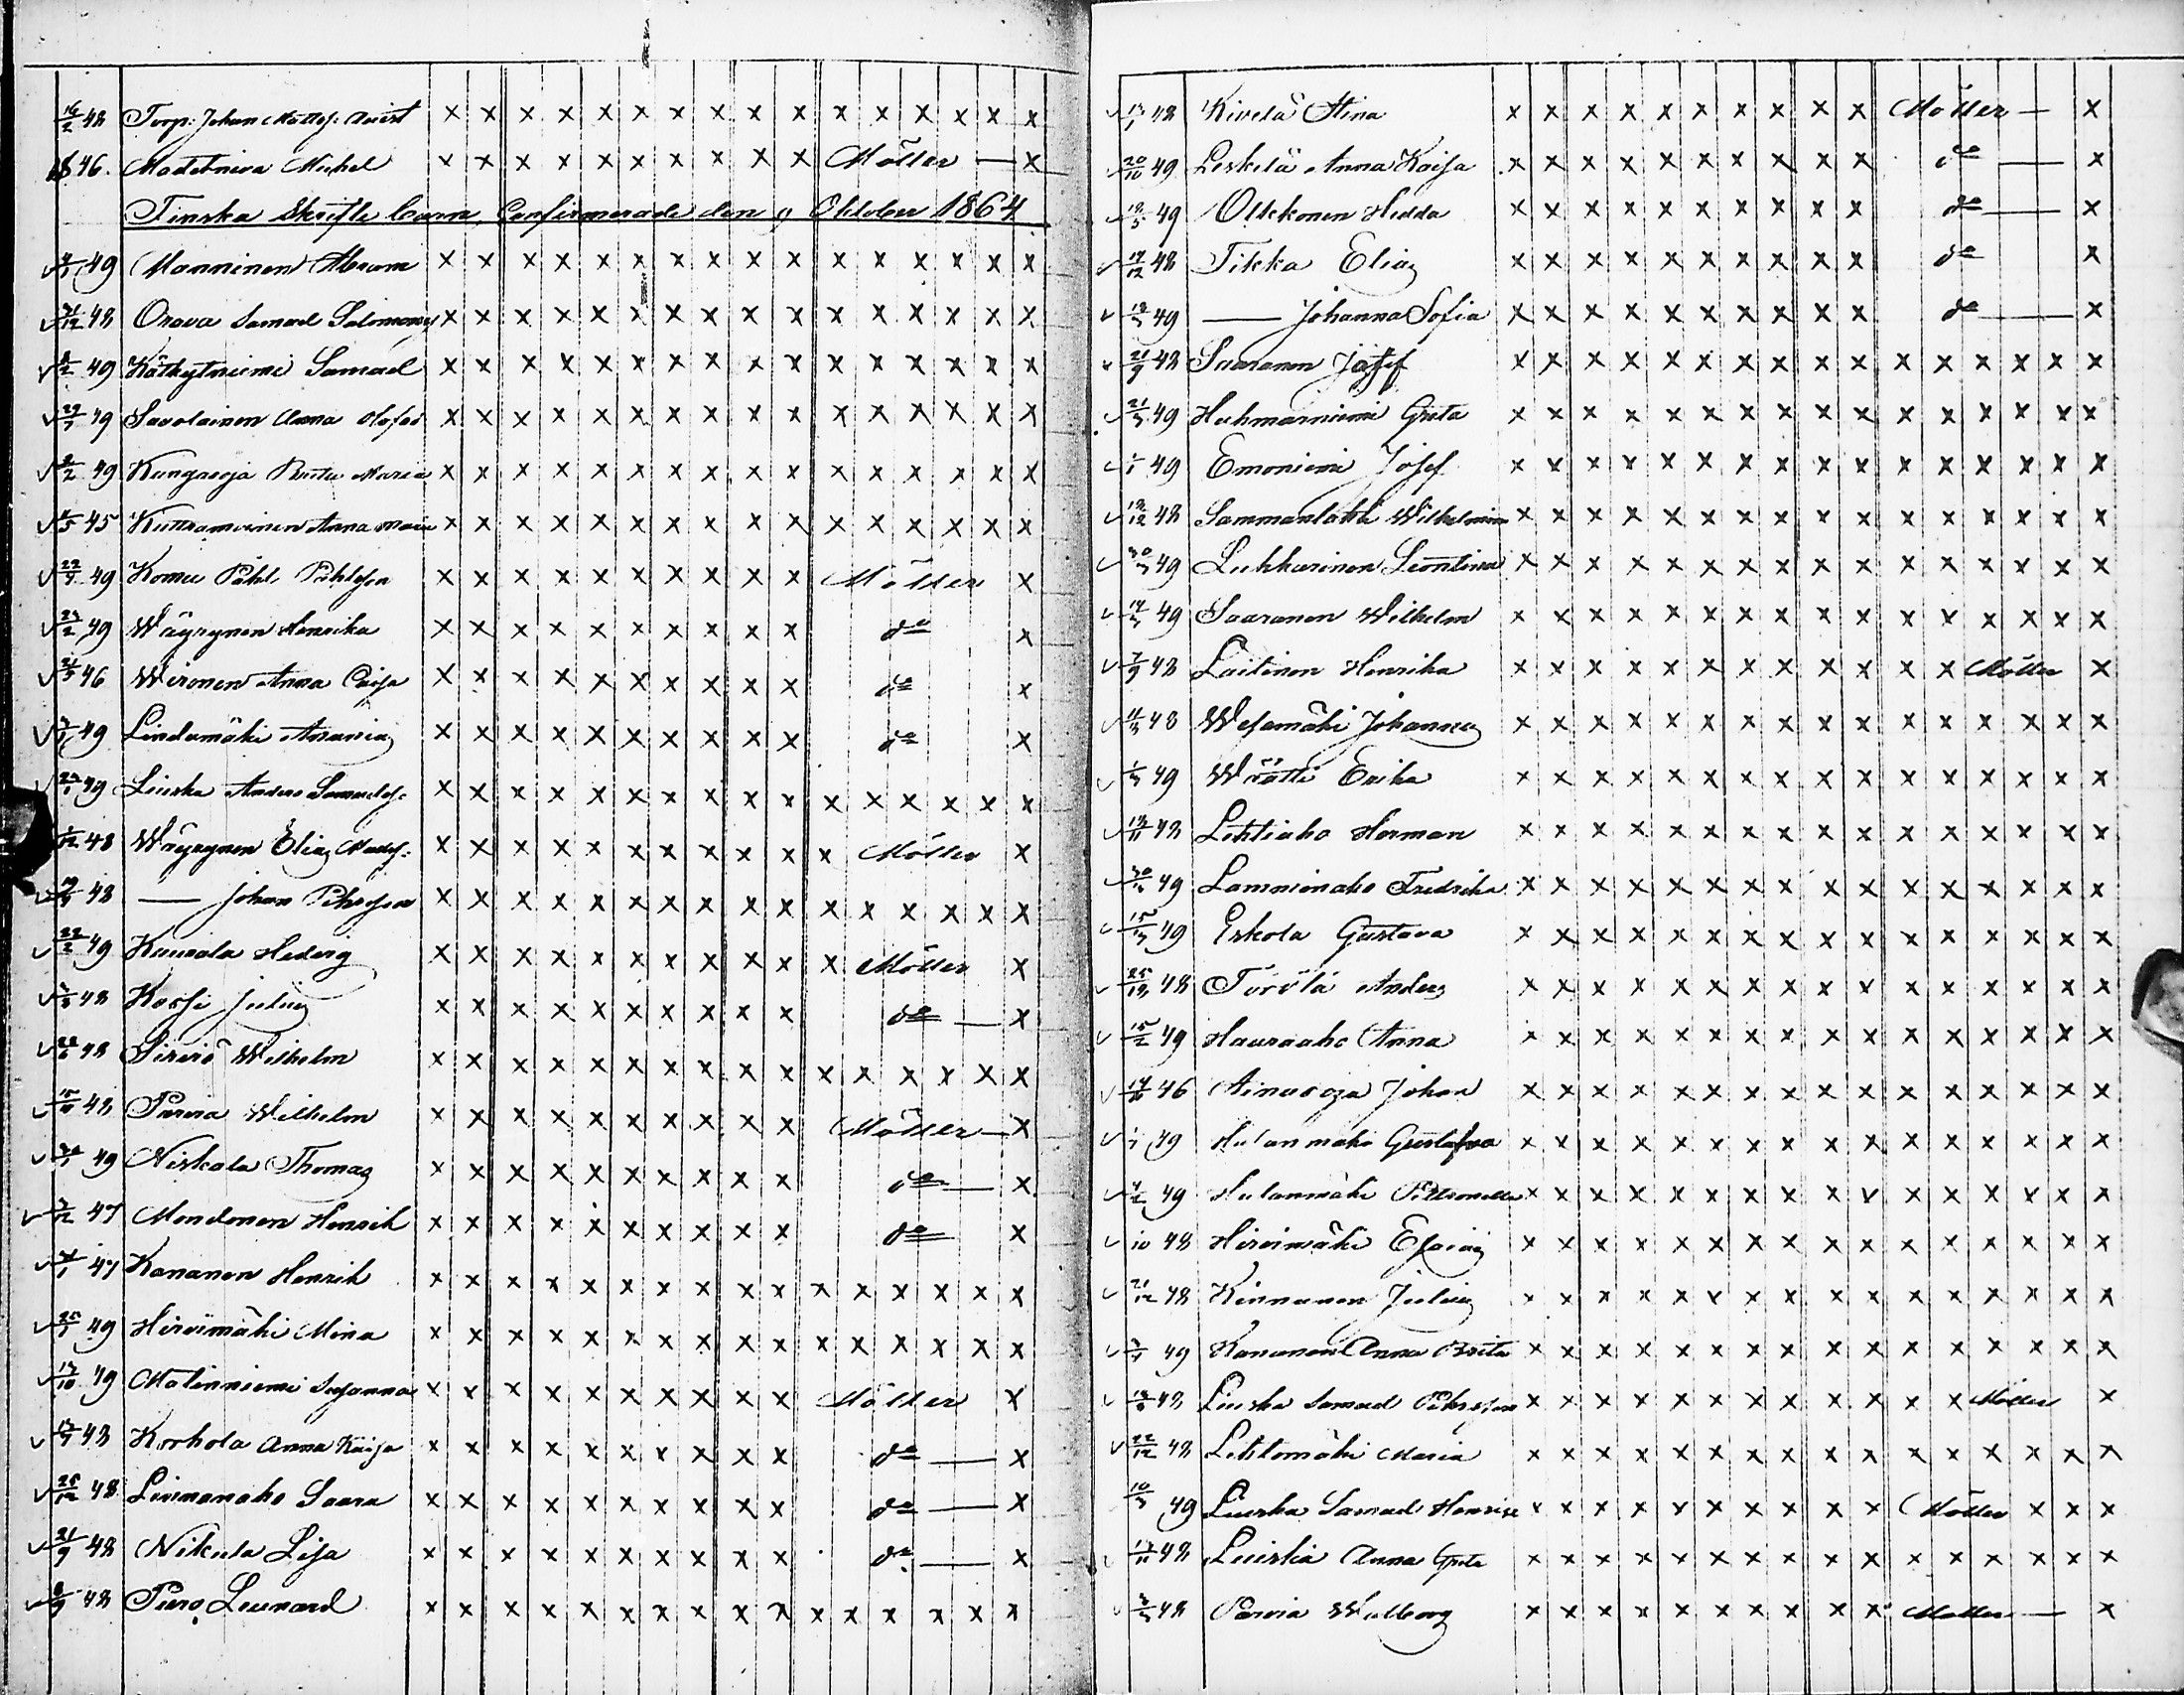 16/2 48 Torp: Johan Mattss: Avist x x x x x x x x x x x x x x x x
46. Madetneva Michel x x x x x x x x x x Möller — x
Finska Skriftebarn, Confirmerade den 9 Oktober 1864
49 Manninen Abram x x x x x x x x x x x x x x x x
21/12 48 Orava Samuel Salomonss x x x x x x x x x x x x x x x x
8/2 49 Kätkytniemi Samuel x x x x x x x x x x x x x x x x
49 Savolainen Anna x x x x x x x x x x x x x x x x
2/2 49 Kungasoja Brita Maria x x x x x x x x x x x x x x x x
45 Kuttramoinen Anna Maria x x x x x x x x x x x x x x x x
49 Komu Påhl Påhlsson x x x x x x x x x x Möller x
23/2 49 Wäyrynen Henrika x x x x x x x x x x do x
46 Wironen Anna Caisa x x x x x x x x x x do x
49 Lindumäki Ananias x x x x x x x x x x do x
49 Liuska Anders Samuelss: x x x x x x x x x x x x x x x x
48 Wäyrynen Elias Mattss: x x x x x x x x x x x Möller x
48 — Johan Pehrsson x x x x x x x x x x x x x x x x
22/2 49 Kuusala Hedvig x x x x x x x x x x x Möller x
48 Kossi Julius x x x x x x x x x x do — x
28/6 48 Sirviö Wilhelm x x x x x x x x x x x x x x x x
48 Parvia Wilhelm x x x x x x x x x x Möller — x
49 Niskala Thomas x x x x x x x x x x do — x
47 Mondonen Henrik x x x x x x x x x x do x
47 Kananen Henrik x x x x x x x x x x x x x x x x
49 Hirvimäki Mina x x x x x x x x x x x x x x x x
13/10 49 Matinniemi Susanna x x x x x x x x x x Möller x
48 Korhola Anna Kaisa x x x x x x x x x x do — x
25/12 48 Liimanaho Saara x x x x x x x x x x do — x
21/9 48 Nikula Lisa x x x x x x x x x x do — x
48 Puro, Leonard x x x x x x x x x x x x x x x x
48 Kivelä Stina x x x x x x x x x x Möller — x
20/10 49 Leskelä Anna Kaisa x x x x x x x x x x do — x
49 Olkkonen Hedda x x x x x x x x x x do — x
17/12 48 Tikka Elias x x x x x x x x x x do x
49 — Johanna Sofia x x x x x x x x x x do — x
21/9 48 Saaranen Josef x x x x x x x x x x x x x x x x
21/3 49 Huhmarniemi Greta x x x x x x x x x x x x x x x x
49 Emoniemi Josef x x x x x x x x x x x x x x x x
12/12 48 Sammanlakti Wilhelmina x x x x x x x x x x x x x x x x
30/3 49 Lukkarinen Leontina x x x x x x x x x x x x x x x x
49 Saaranen Wilhelm x x x x x x x x x x x x x x x x
7/9 48 Laitinen Henrika x x x x x x x x x x x x Möller x
48 Wesamäki Johannes x x x x x x x x x x x x x x x x
49 Wrätti Erika x x x x x x x x x x x x x x x x
13/11 48 Lehtiaho Herman x x x x x x x x x x x x x x x x
49 Lamminaho Fredrika x x x x x x x x x x x x x x x x
49 Eskola Gustava x x x x x x x x x x x x x x x x
25/12 48 Törölä Anders x x x x x x x x x x x x x x x x
15/2 49 Hauraaho Anna x x x x x x x x x x x x x x x x
46 Ainasoja Johan x x x x x x x x x x x x x x x x
49 Hulanmäki Gustafva x x x x x x x x x x x x x x x x
4/2 49 Hulanmäki Petronella x x x x x x x x x x x x x x x x
48 Hirvimäki Esaias x x x x x x x x x x x x x x x x
21/12 48 Kinnunen Julius x x x x x x x x x x x x x x x x
49 Kananen Anna Brita x x x x x x x x x x x x x x x x
48 Liuska Samuel Pehrsson x x x x x x x x x x x x Möller x
22/12 48 Lehtomäki Maria x x x x x x x x x x x x x x x x
10/3 49 Liuska Samuel Henrics x x x x x x x x x x Möller x x x
48 Luiska Anna Greta x x x x x x x x x x x x x x x x
48 Parvia Walborg x x x x x x x x x x Möller — x